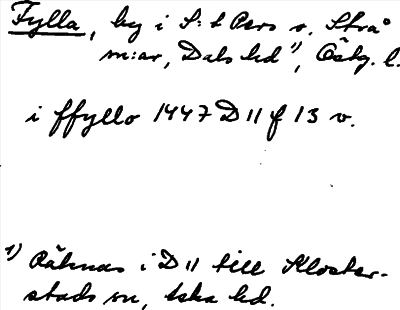 Fylla, by i S:t Pers o. Strå
m:ar, Dals hd 1), Östg. l.
i ffyllo 1447 D 11 f 13 v.
1) Räknas i D 11 till Kloster-
stads sn, Aska hd.